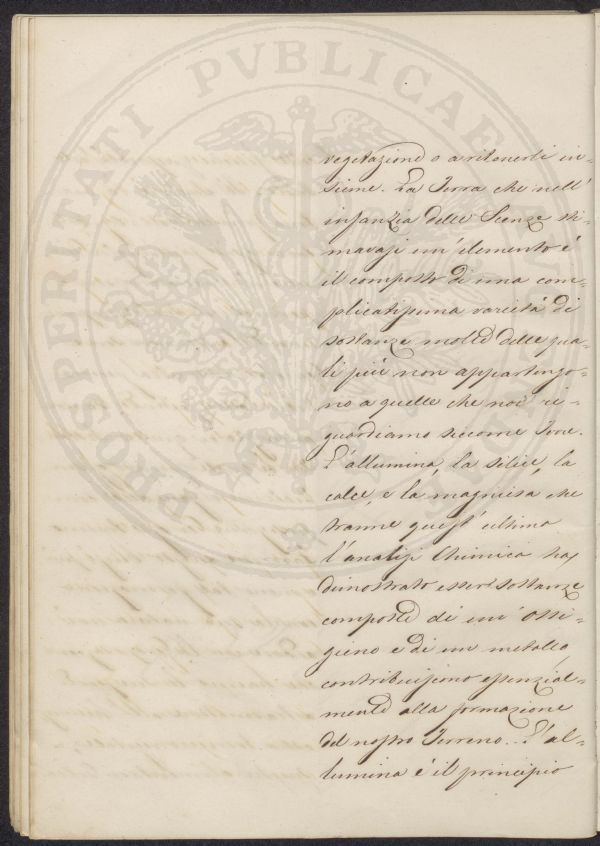 PROSPERITATI PVBLICAE
vegetazione o a ritenerli in-
sieme. La Terra che nell'
infanzia delle Scenze sti-
mavasi un'elemento è
il composto di una com-
plicatissima varietà di
sostanze molte delle qua-
li più non appartengo-
no a quelle che noi ri-
guardiamo siccome Terre.
L'allumina, la silice, la
calce, e la magnesia che
tranne quest'ultima
l'analisi Chimica ha
dimostrato essere sostanze
composte di un' Ossi-
gieno e di un metallo,
contribuiscono essenzial-
mente alla formazione
del nostro Terreno. L'al-
lumina è il principio